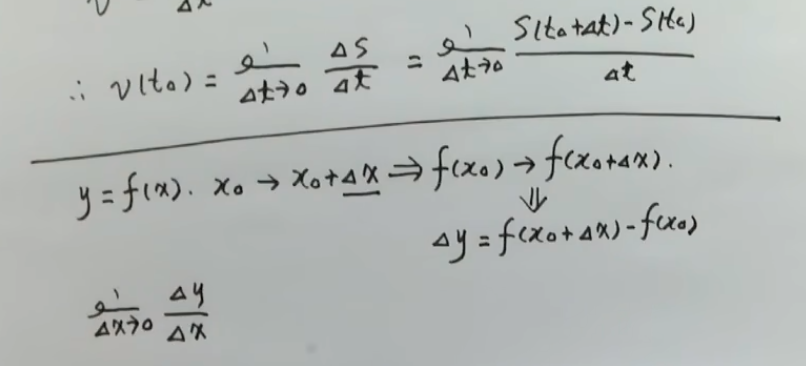 ∴ v(t₀) = lim Δt→0 ΔS/Δt = lim Δt→0 (S(t₀+Δt) - S(t₀))/Δt
y = f(x). x₀ → x₀+Δx ⇒ f(x₀) → f(x₀+Δx).
⇓
Δy = f(x₀+Δx) - f(x₀)
lim Δx→0 Δy/Δx